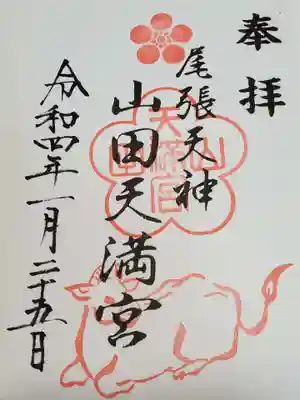 奉拝
尾張天神
山田天満宮
令和四年一月二十五日